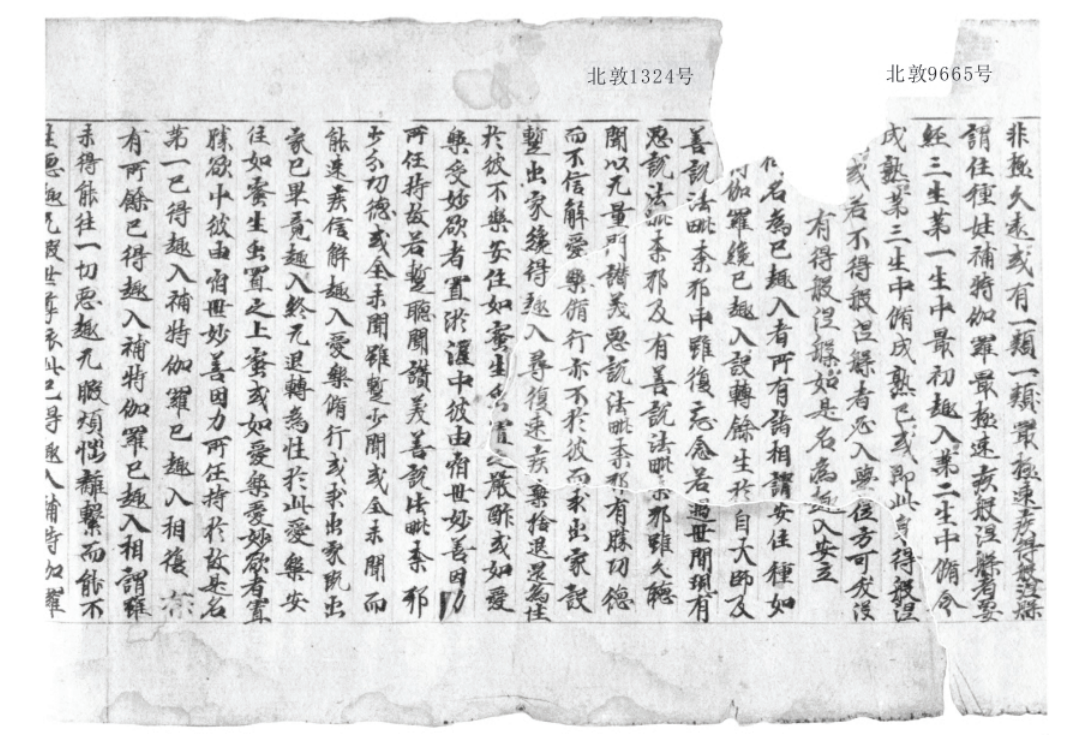 北敦1324号
北敦9665号
非極久遠或有一類一類最極速疾得般涅槃
謂住種姓補特伽羅最極速疾般涅槃者要
經三生第一生中最初趣入第二生中脩令
成熟第三生中脩成熟已或即此身得般涅
或若不得般涅槃者必入學位方可夭沒
有得般涅槃如是名為趣入安立
何名為已趣入者所有諸相謂安住種如
特伽羅纔已趣入設轉餘生於自大師及
善說法毗奈耶中雖復忘念若遇世間現有
惡說法毗奈耶及有善說法毗奈耶雖久聽
聞以无量門讃美惡說法毗奈耶有勝功德
而不信解愛樂脩行亦不於彼而求出家設
暫出家纔得趣入尋復速疾棄捨退還為性
於彼不樂安住如蜜生虫置之嚴酢或如愛
樂受妙欲者置淤渥中彼由宿世妙善因力
所任持故若暫聽聞讃美善說法毗奈耶
少分功德或全未聞雖暫少聞或全未聞而
能速疾信解趣入愛樂脩行或求出家既出
家已畢竟趣入終无退轉為性於此愛樂安
住如蜜生虫置之上蜜或如愛樂愛妙欲者置
勝欲中彼由宿世妙善因力所任持於故是名
第一已得趣入補特伽羅已趣入相復
有所餘已得趣入補特伽羅已趣入相謂雖
未得能往一切惡趣无暇煩惱離繫而能不
生惡趣无暇世尊依此已得趣入補特伽羅